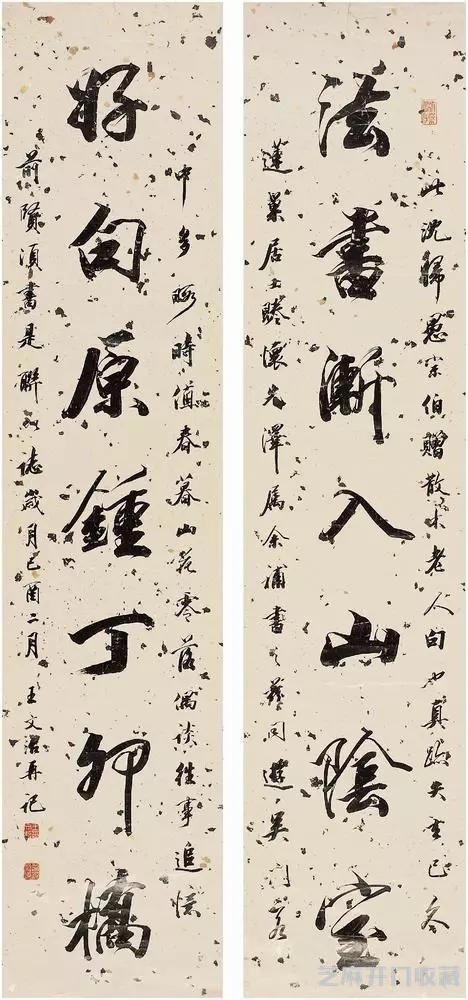 此沈歸愚宗伯贈散木老人句也真跡失去已久
法書漸入山陰室
蓬巢居士睠懷先澤屬余補書之同遊吳門
中多暇時值春暮山花零落偶談往事追憶
好句原鍾丁卯橋
前賢須書是聯以誌歲月己酉二月王文治再記
芝麻开门收藏